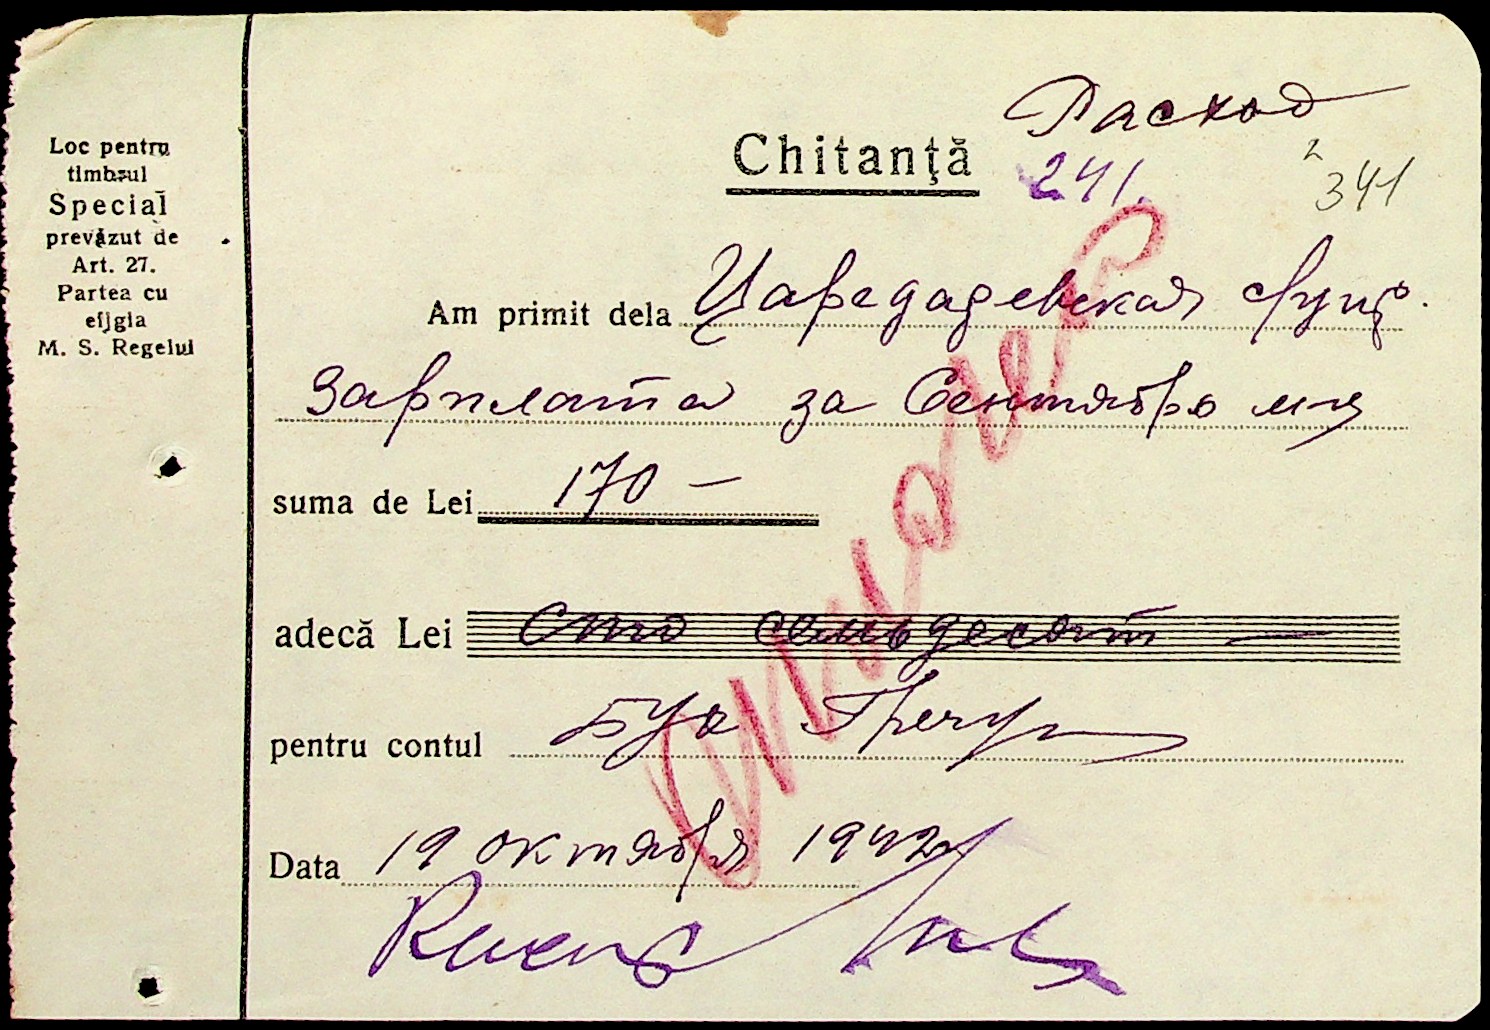 Loc pentru
timbrul
Special
prevăzut de
Art. 27.
Partea cu
efigia
M. S. Regelui
Расход
Chitanță
241.
2
341
Am primit dela
Зарплата за Сентябрь м-ц
suma de Lei 170 —
adecă Lei Сто семьдесят —
pentru contul
Data 19 октября 1942